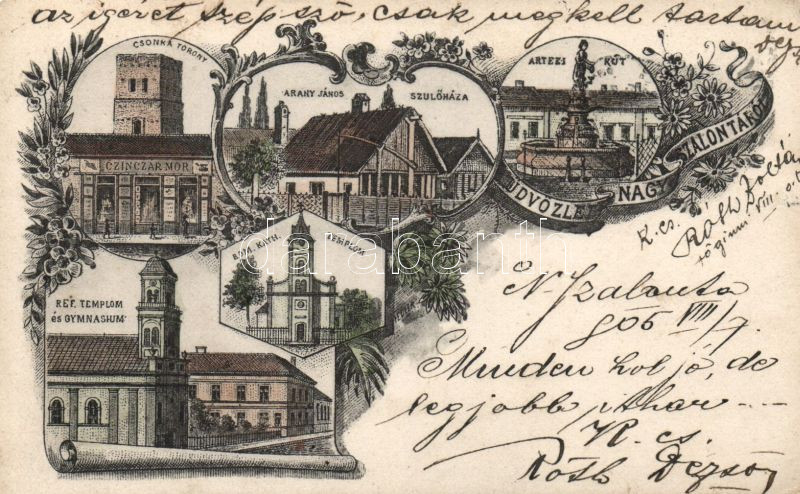 az igéret szép szó, csak megkell tartani
CSONKA TORONY
ARANY JÁNOS SZÜLŐHÁZA
ARTEZI KÚT
CZINCZÁR MÓR
ÜDVÖZLET NAGY SZALONTÁRÓL
RÓM. KATH. TEMPLOM
REF. TEMPLOM
és GYMNASIUM
K. cs.
Róth Zoltán
VIII. o. t.
N. Szalonta
905 VIII/7
Minden hol jó, de
legjobb itthon ---
K. cs.
Róth Dezső
darabanth